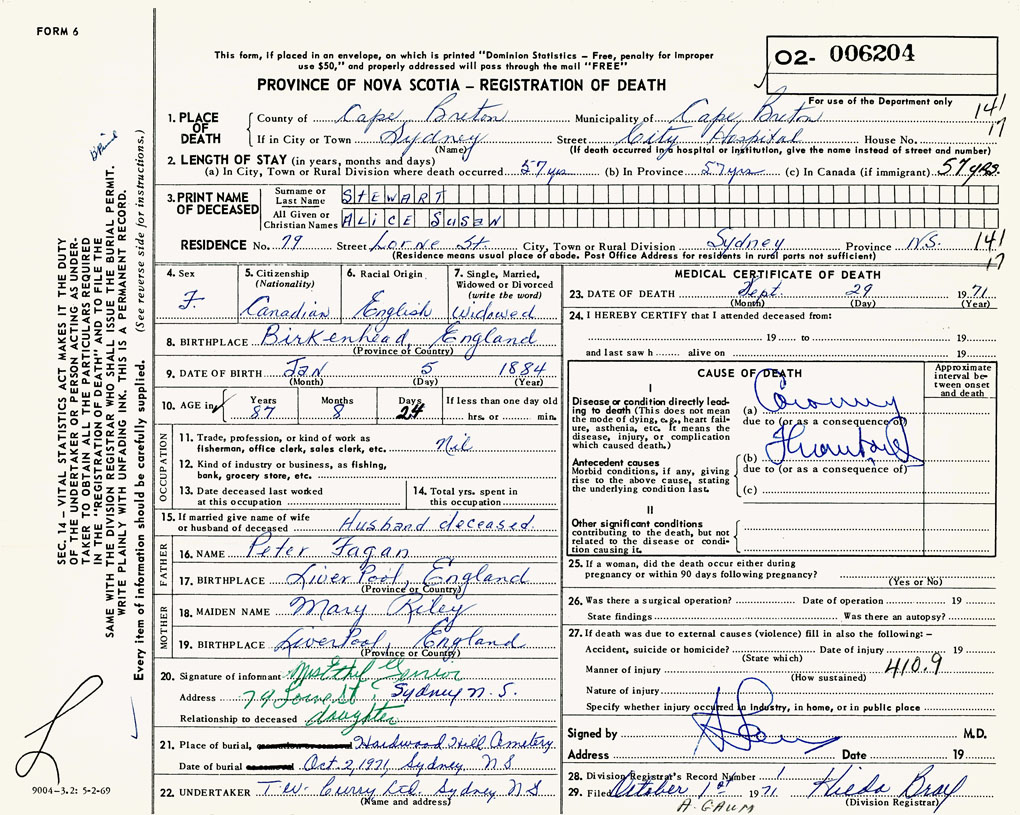 FORM 6
This form, if placed in an envelope, on which is printed "Dominion Statistics – Free, penalty for improper
use $50," and properly addressed will pass through the mail "FREE"
O2- 006204
PROVINCE OF NOVA SCOTIA – REGISTRATION OF DEATH
For use of the Department only
1. PLACE OF DEATH County of Cape Breton Municipality of Cape Breton 141
If in City or Town Sydney Street City Hospital House No. 17
(Name) (If death occurred in a hospital or institution, give the name instead of street and number)
2. LENGTH OF STAY (in years, months and days)
(a) In City, Town or Rural Division where death occurred 57 yrs (b) In Province 57 yrs (c) In Canada (if immigrant) 57 yrs.
3. PRINT NAME OF DECEASED Surname or Last Name STEWART
All Given or Christian Names ALICE SUSAN
RESIDENCE No. 79 Street Lorne St City, Town or Rural Division Sydney Province N.S. 141
(Residence means usual place of abode. Post Office Address for residents in rural parts not sufficient) 17
4. Sex F.
5. Citizenship (Nationality) Canadian
6. Racial Origin English
7. Single, Married, Widowed or Divorced (write the word) Widowed
8. BIRTHPLACE Birkenhead, England
(Province or Country)
9. DATE OF BIRTH Jan 5 1884
(Month) (Day) (Year)
10. AGE in Years 87 Months 8 Days 24 If less than one day old hrs. or min.
OCCUPATION
11. Trade, profession, or kind of work as fisherman, office clerk, sales clerk, etc. Nil
12. Kind of industry or business, as fishing, bank, grocery store, etc.
13. Date deceased last worked at this occupation
14. Total yrs. spent in this occupation
15. If married give name of wife or husband of deceased Husband deceased.
FATHER
16. NAME Peter Fagan
17. BIRTHPLACE LiverPool, England
(Province or Country)
MOTHER
18. MAIDEN NAME Mary Riley
19. BIRTHPLACE LiverPool, England
(Province or Country)
20. Signature of informant Mrs Ethel
Address 79 Lorne St; Sydney N.S.
Relationship to deceased daughter
21. Place of burial, Hardwood Hill Cemetery
Date of burial Oct. 2, 1971, Sydney NS
22. UNDERTAKER T.W. Curry Ltd. Sydney NS
(Name and address)
MEDICAL CERTIFICATE OF DEATH
23. DATE OF DEATH Sept. 29 1971
(Month) (Day) (Year)
24. I HEREBY CERTIFY that I attended deceased from:
19 to 19
and last saw h alive on 19
CAUSE OF DEATH
Approximate interval between onset and death
I
Disease or condition directly leading to death (This does not mean the mode of dying, e.g., heart failure, asthenia, etc. It means the disease, injury, or complication which caused death.)
(a) Coronary
due to (or as a consequence of)
Antecedent causes
Morbid conditions, if any, giving rise to the above cause, stating the underlying condition last.
(b) Thrombosis
due to (or as a consequence of)
(c)
II
Other significant conditions
contributing to the death, but not related to the disease or condition causing it.
25. If a woman, did the death occur either during
pregnancy or within 90 days following pregnancy?
(Yes or No)
26. Was there a surgical operation? Date of operation 19
State findings Was there an autopsy?
27. If death was due to external causes (violence) fill in also the following: –
Accident, suicide or homicide? Date of injury 19
(State which)
Manner of injury 410.9
(How sustained)
Nature of injury
Specify whether injury occurred in industry, in home, or in public place
Signed by M.D.
Address Date 19
28. Division Registrar's Record Number 1
29. Filed October 1st 1971 Hilda Bray
A. GAUM (Division Registrar)
SEC. 14 – VITAL STATISTICS ACT MAKES IT THE DUTY
OF THE UNDERTAKER OR PERSON ACTING AS UNDER-
TAKER TO OBTAIN ALL THE PARTICULARS REQUIRED
IN THE "REGISTRATION OF DEATH" AND TO FILE THE
SAME WITH THE DIVISION REGISTRAR WHO SHALL ISSUE THE BURIAL PERMIT.
WRITE PLAINLY WITH UNFADING INK. THIS IS A PERMANENT RECORD.
Every item of information should be carefully supplied. (See reverse side for instructions.)
9004-3.2: 5-2-69